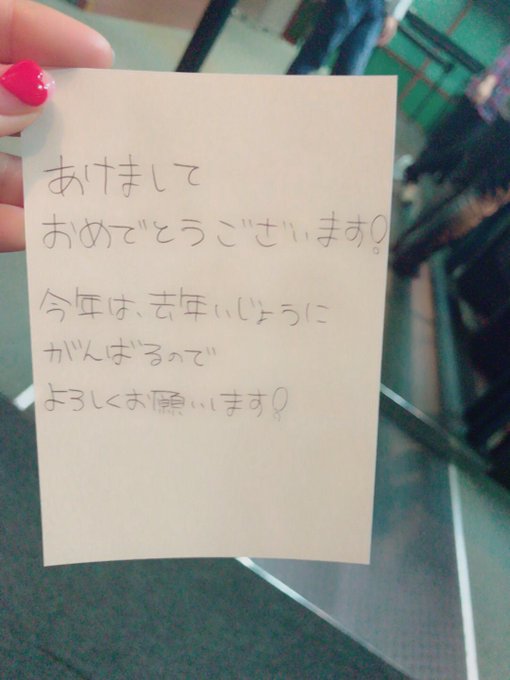 あけまして
おめでとうございます!
今年は、去年いじょうに
がんばるので
よろしくお願いします!